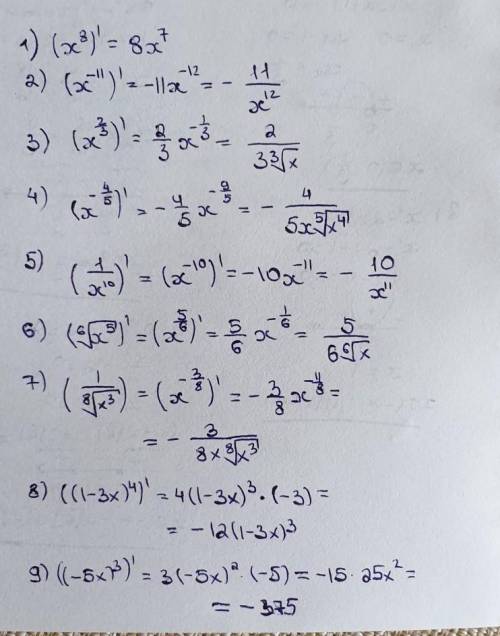 1) (x⁸)' = 8x⁷
2) (x⁻¹¹)' = -11x⁻¹² = - 11/x¹²
3) (x^(2/3))' = 2/3 x^(-1/3) = 2/(3∛x)
4) (x^(-4/5))' = - 4/5 x^(-9/5) = - 4/(5x⁵√(x⁴))
5) (1/x¹⁰)' = (x⁻¹⁰)' = -10x⁻¹¹ = - 10/x¹¹
6) (⁶√(x⁵))' = (x^(5/6))' = 5/6 x^(-1/6) = 5/(6⁶√x)
7) (1/⁸√(x³)) = (x^(-3/8))' = - 3/8 x^(-11/8) =
= - 3/(8x⁸√(x³))
8) ((1-3x)⁴)' = 4(1-3x)³·(-3) =
= -12(1-3x)³
9) ((-5x)³)' = 3(-5x)²·(-5) = -15·25x² =
= -375